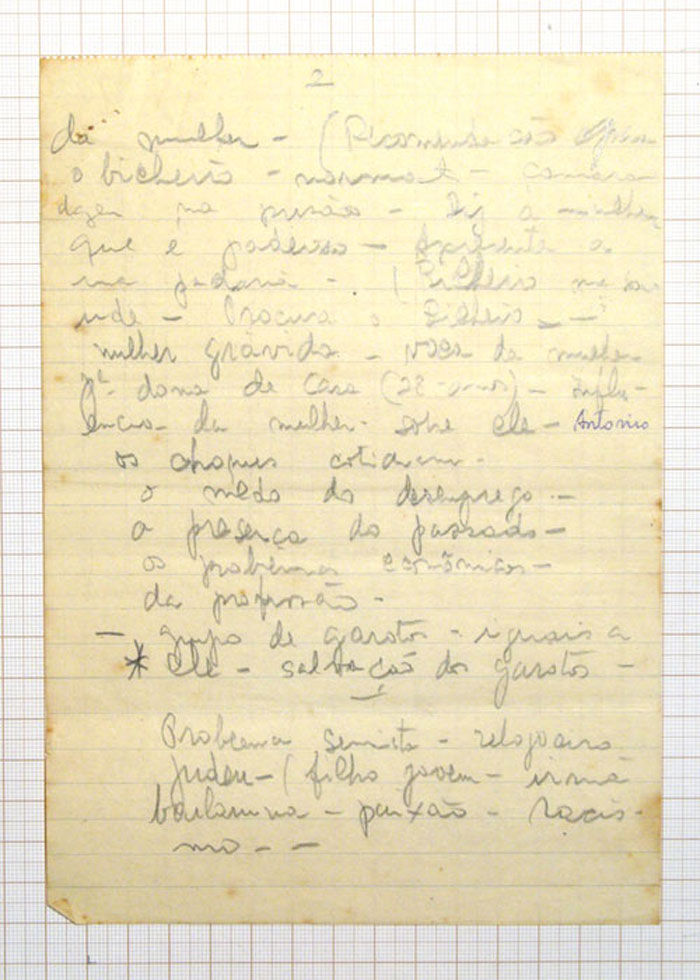 2
da mulher - (Recomendação
o bicheiro - normal - camara
dagem na prisão - Diz a mulher
que é poderoso - Apresenta a
na padaria - . (Bicheiro na sa
ude - Procura o Bicheiro - -
mulher grávida - voz da mulher
dona de casa (28 anos) - Influ-
encia da mulher - sobre ele - Antonio
os choques cotidianos -
o medo do desemprego -
a presença do passado -
os problemas econômicos -
da profissão -
- grupo de garotos - iguais a
* ele - salvação dos garotos -
Problema semita - relojoeiro
judeu - (filho jovem - irmã
bailarina - paixão - Racis-
mo - -